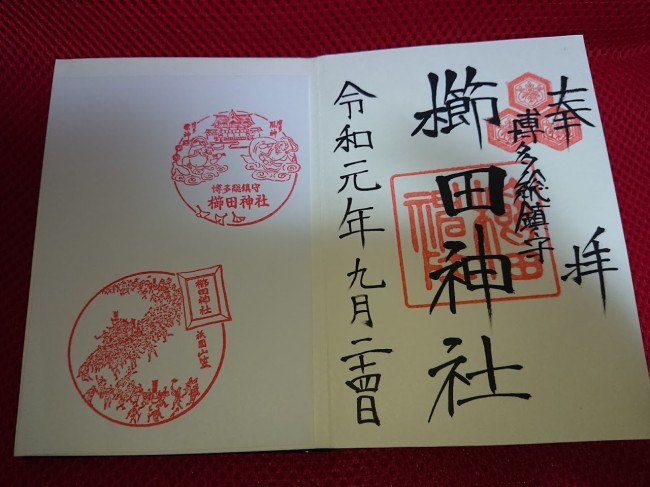 奉拝
博多總鎮守
櫛田神社
令和元年九月二十四日
博多總鎮守
櫛田神社
櫛田神社
祇園山笠